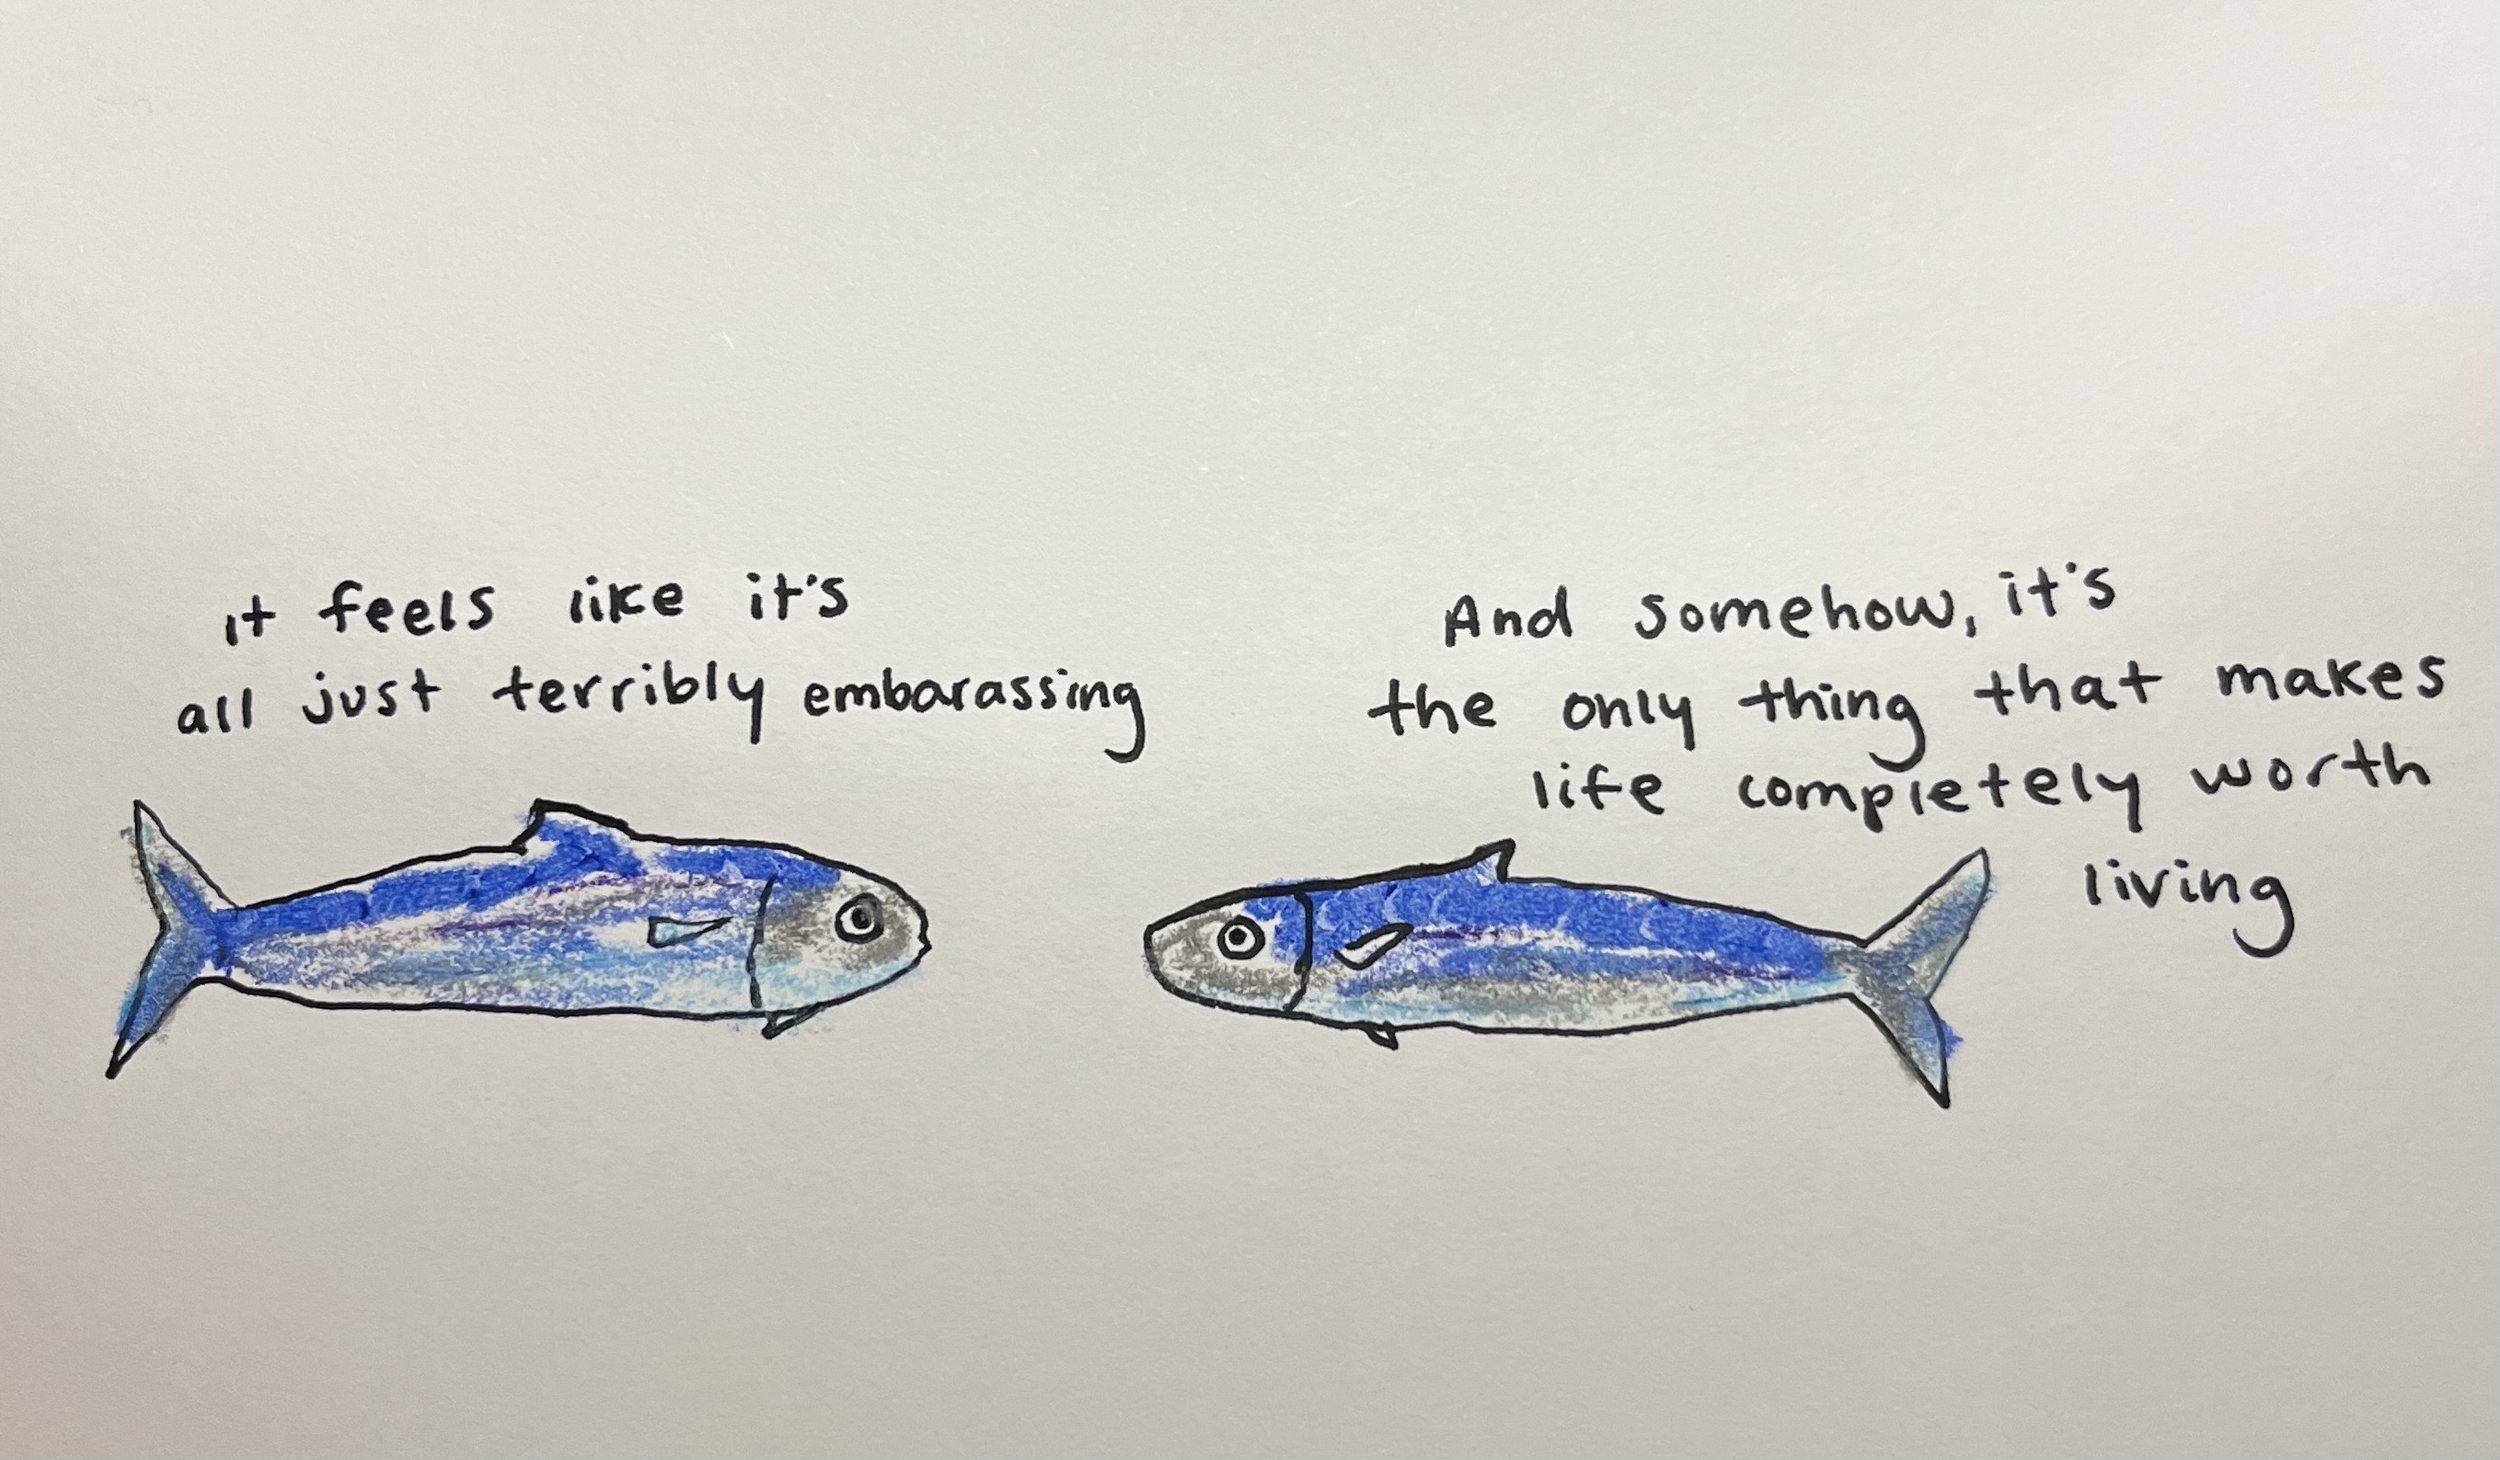 it feels like it's
all just terribly embarassing
And somehow, it's
the only thing that makes
life completely worth
living